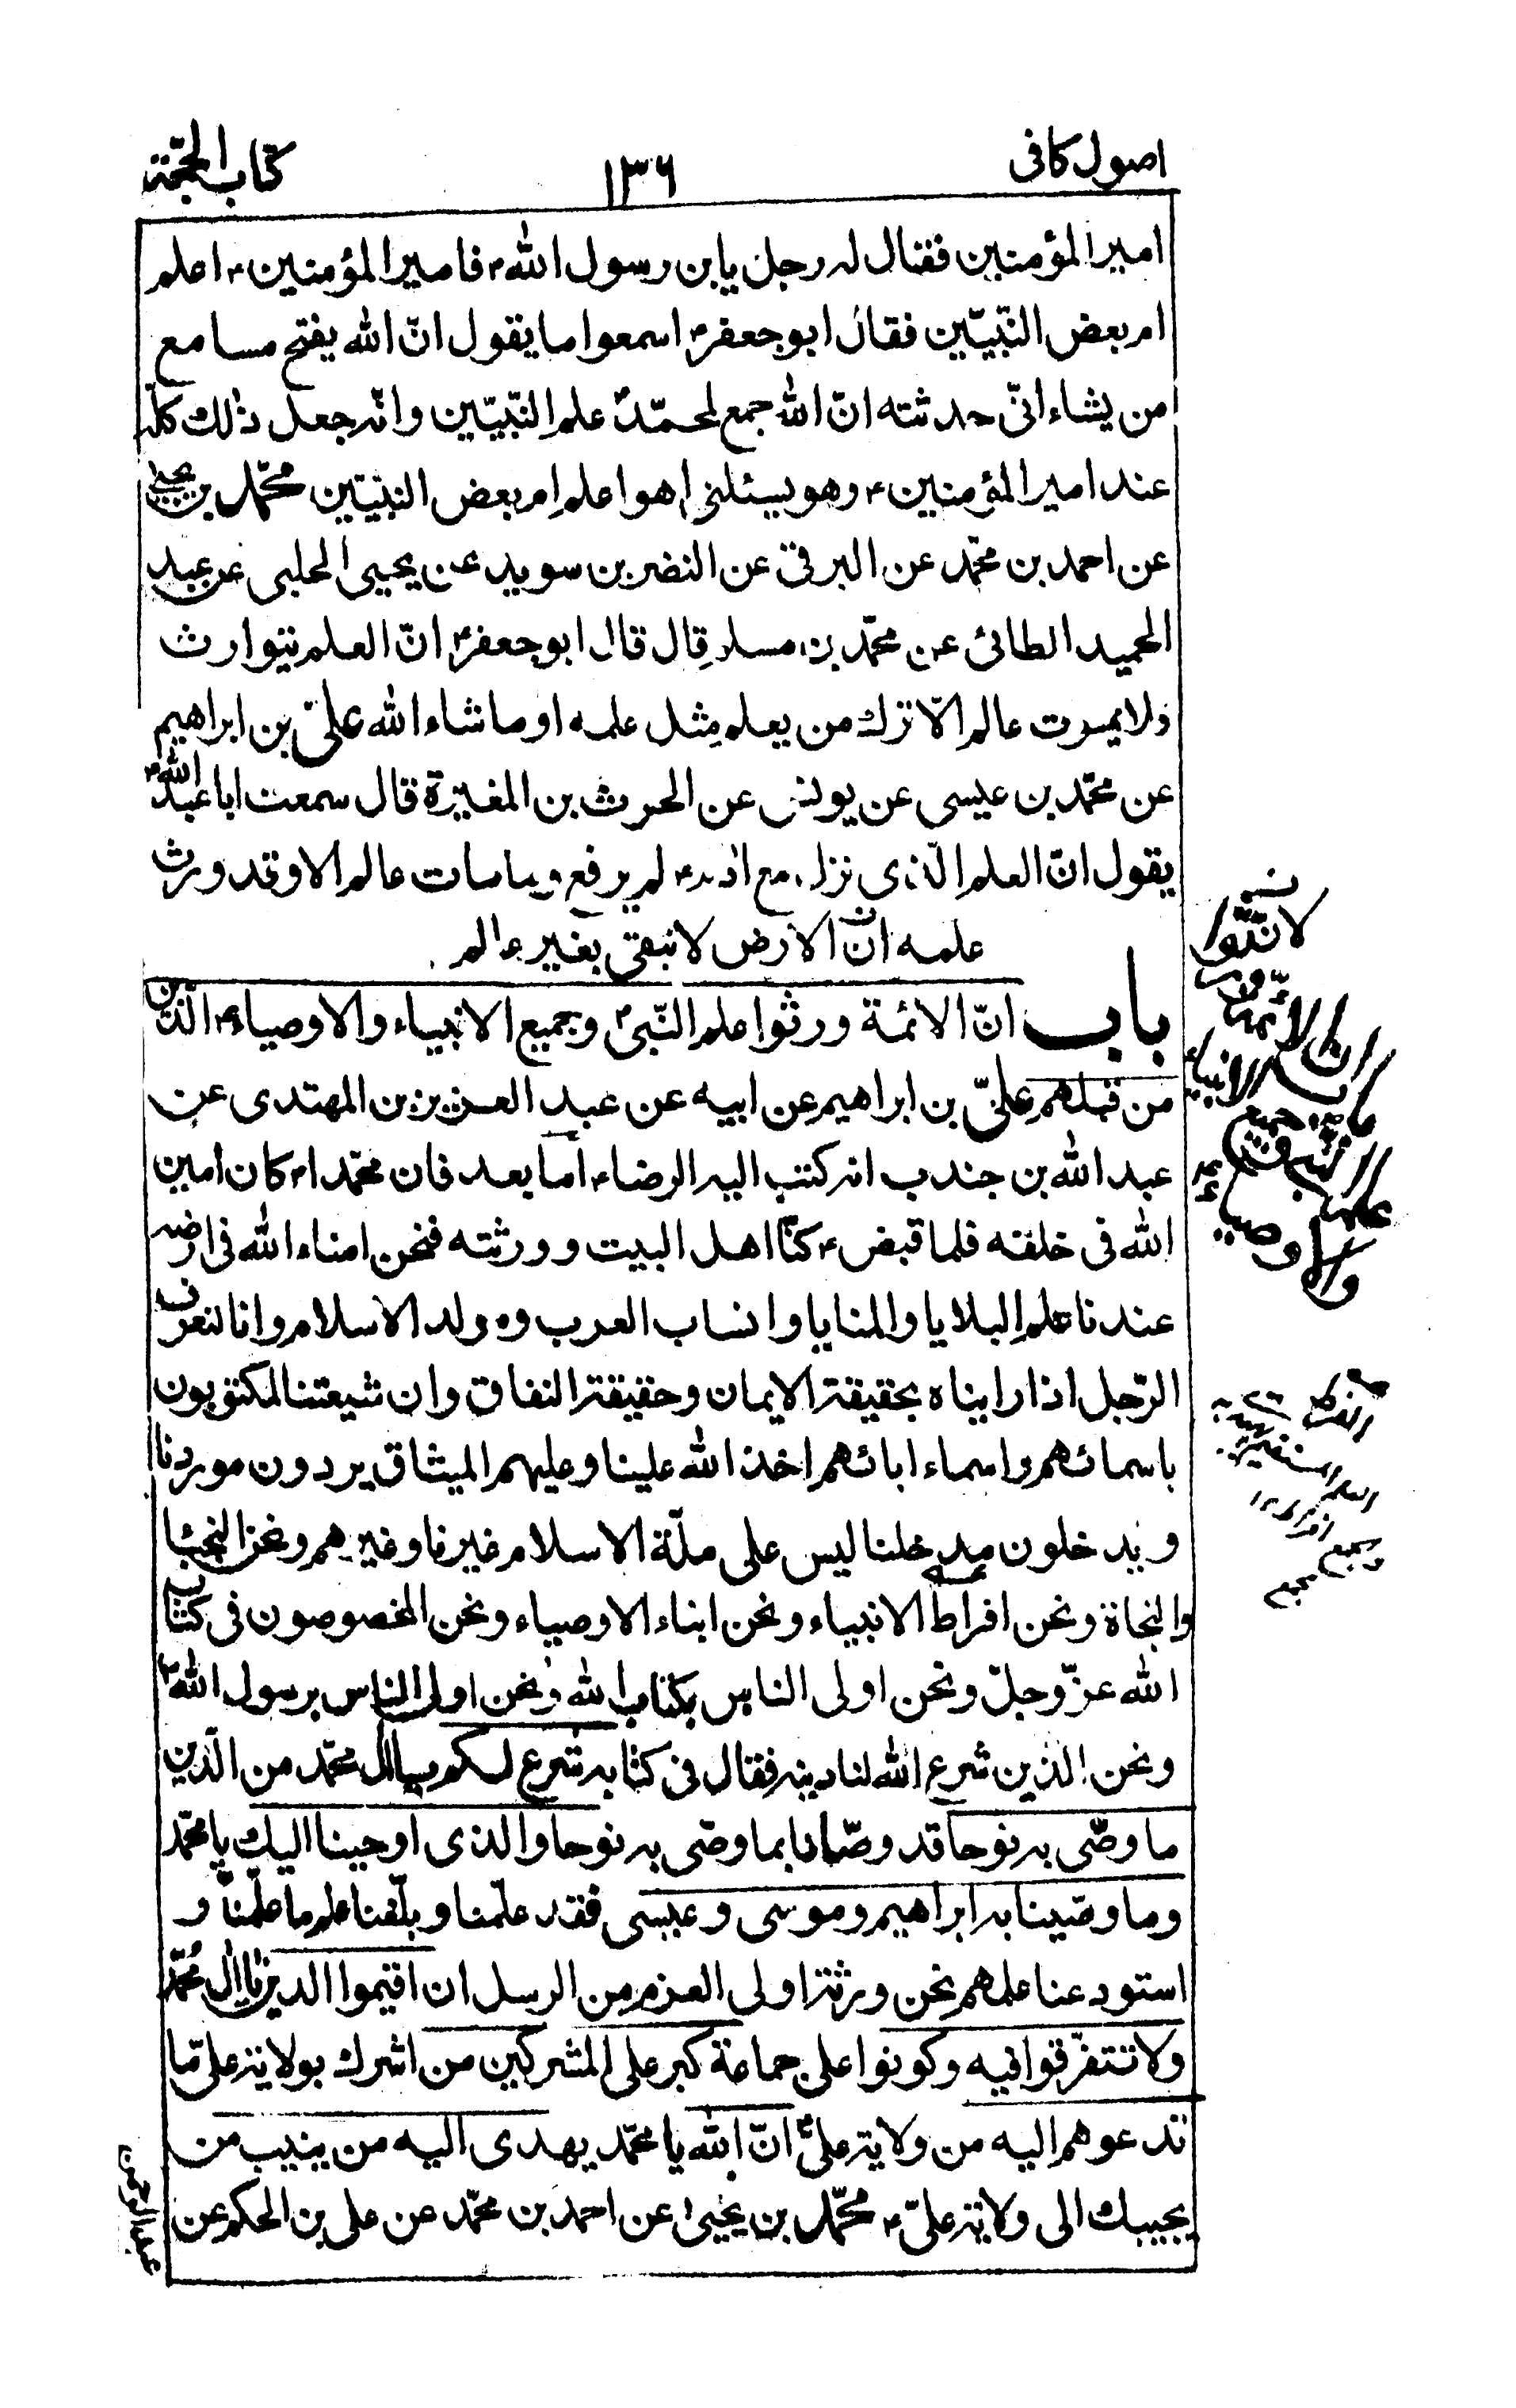 اصول كافى ١٣٦ كتاب الحجة
امير المؤمنين فقال له رجل يابن رسول اللهؐ فامير المؤمنينؑ اعلم
ام بعض النّبيّين فقال ابو جعفرؑ اسمعوا ما يقول انّ الله يفتح مسامع
من يشاء انّى حدثته انّ الله جمع لمحمّدؐ علم النّبيّين وانّه جعل ذلك كلّه
عند امير المؤمنينؑ وهو يسئلنى اهو اعلم ام بعض النبيّين محمّد بن يحيى
عن احمد بن محمّد عن البرقى عن النضر بن سويد عن يحيى الحلبى عن عبد
الحميد الطائى عن محمّد بن مسلم قال قال ابو جعفرؑ انّ العلم يتوارث
ولا يموت عالم الّا ترك من يعلم مثل علمه او ما شاء الله علىّ بن ابراهيم
عن محمّد بن عيسى عن يونس عن الحرث بن المغيرة قال سمعت ابا عبد اللهؑ
يقول انّ العلم الّذى نزل مع ادمؑ لم يرفع وما مات عالم الا وقد ورث
علمه انّ الارض لا تبقى بغير عالم
باب انّ الائمة ورثوا علم النّبىؐ وجميع الانبياء والاوصياءؑ الّذين
من قبلهم علىّ بن ابراهيم عن ابيه عن عبد العزيز بن المهتدى عن
عبد الله بن جندب انه كتب اليه الرضاءؑ اما بعد فان محمّداؐ كان امين
الله فى خلقه فلما قبضؐ كنّا اهل البيت وورثته فنحن امناء الله فى ارضه
عندنا علم البلايا والمنايا وانساب العرب ومولد الاسلام وانا لنعرف
الرّجل اذا رايناه بحقيقة الايمان وحقيقة النفاق وان شيعتنا لمكتوبون
باسمائهم واسماء ابائهم اخذ الله علينا وعليهم الميثاق يردون موردنا
ويدخلون مدخلنا ليس على ملّة الاسلام غيرنا وغيرهم ونحن النجباء
والنجاة ونحن افراط الانبياء ونحن ابناء الاوصياء ونحن المخصوصون فى كتاب
الله عزّ وجلّ ونحن اولى الناس بكتاب الله ونحن اولى الناس برسول اللهؐ
ونحن الذين شرع الله لنا دينه فقال فى كتابه شرع لكم يا ال محمّد من الدّين
ما وصّى به نوحا قد وصّانا بما وصّى به نوحا والذى اوحينا اليك يا محمّد
وما وصّينا به ابراهيم وموسى وعيسى فقد علّمنا وبلّغنا علم ما علّمنا و
استودعنا علمهم نحن ورثة اولى العزم من الرسل ان اقيموا الدين يا ال محمّد
ولا تتفرّقوا فيه وكونوا على جماعة كبر على المشركين من اشرك بولاية علىّ ما
تدعوهم اليه من ولاية علىؑ انّ الله يا محمّد يهدى اليه من ينيب من
يجيبك الى ولاية علىّؑ محمّد بن يحيى عن احمد بن محمّد عن على بن الحكم عن
عبد الرحمن